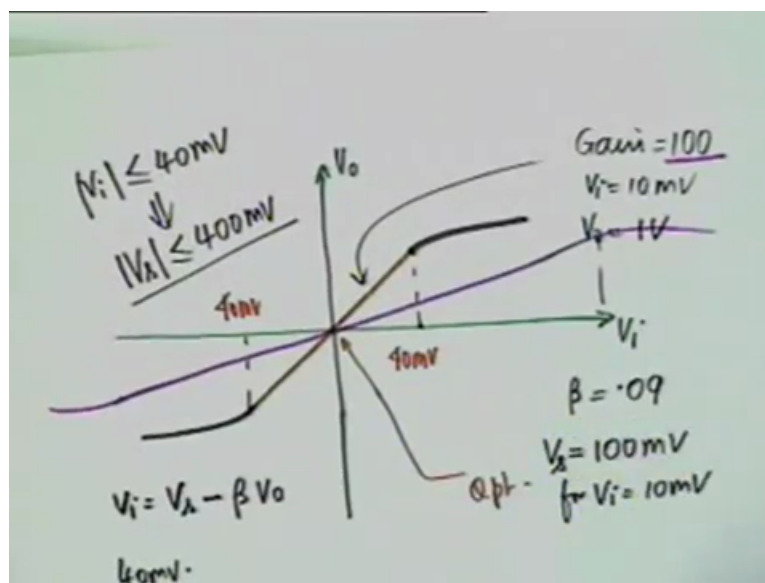 |Vi| ≤ 40mV
⇓
|Vs| ≤ 400mV
Vo
Gain = 100
Vi = 10mV
Vo = 1V
40mV
40mV
Vi
β = .09
Vs = 100mV
for Vi = 10mV
Qpt.
Vi = Vs - β Vo
40mV.